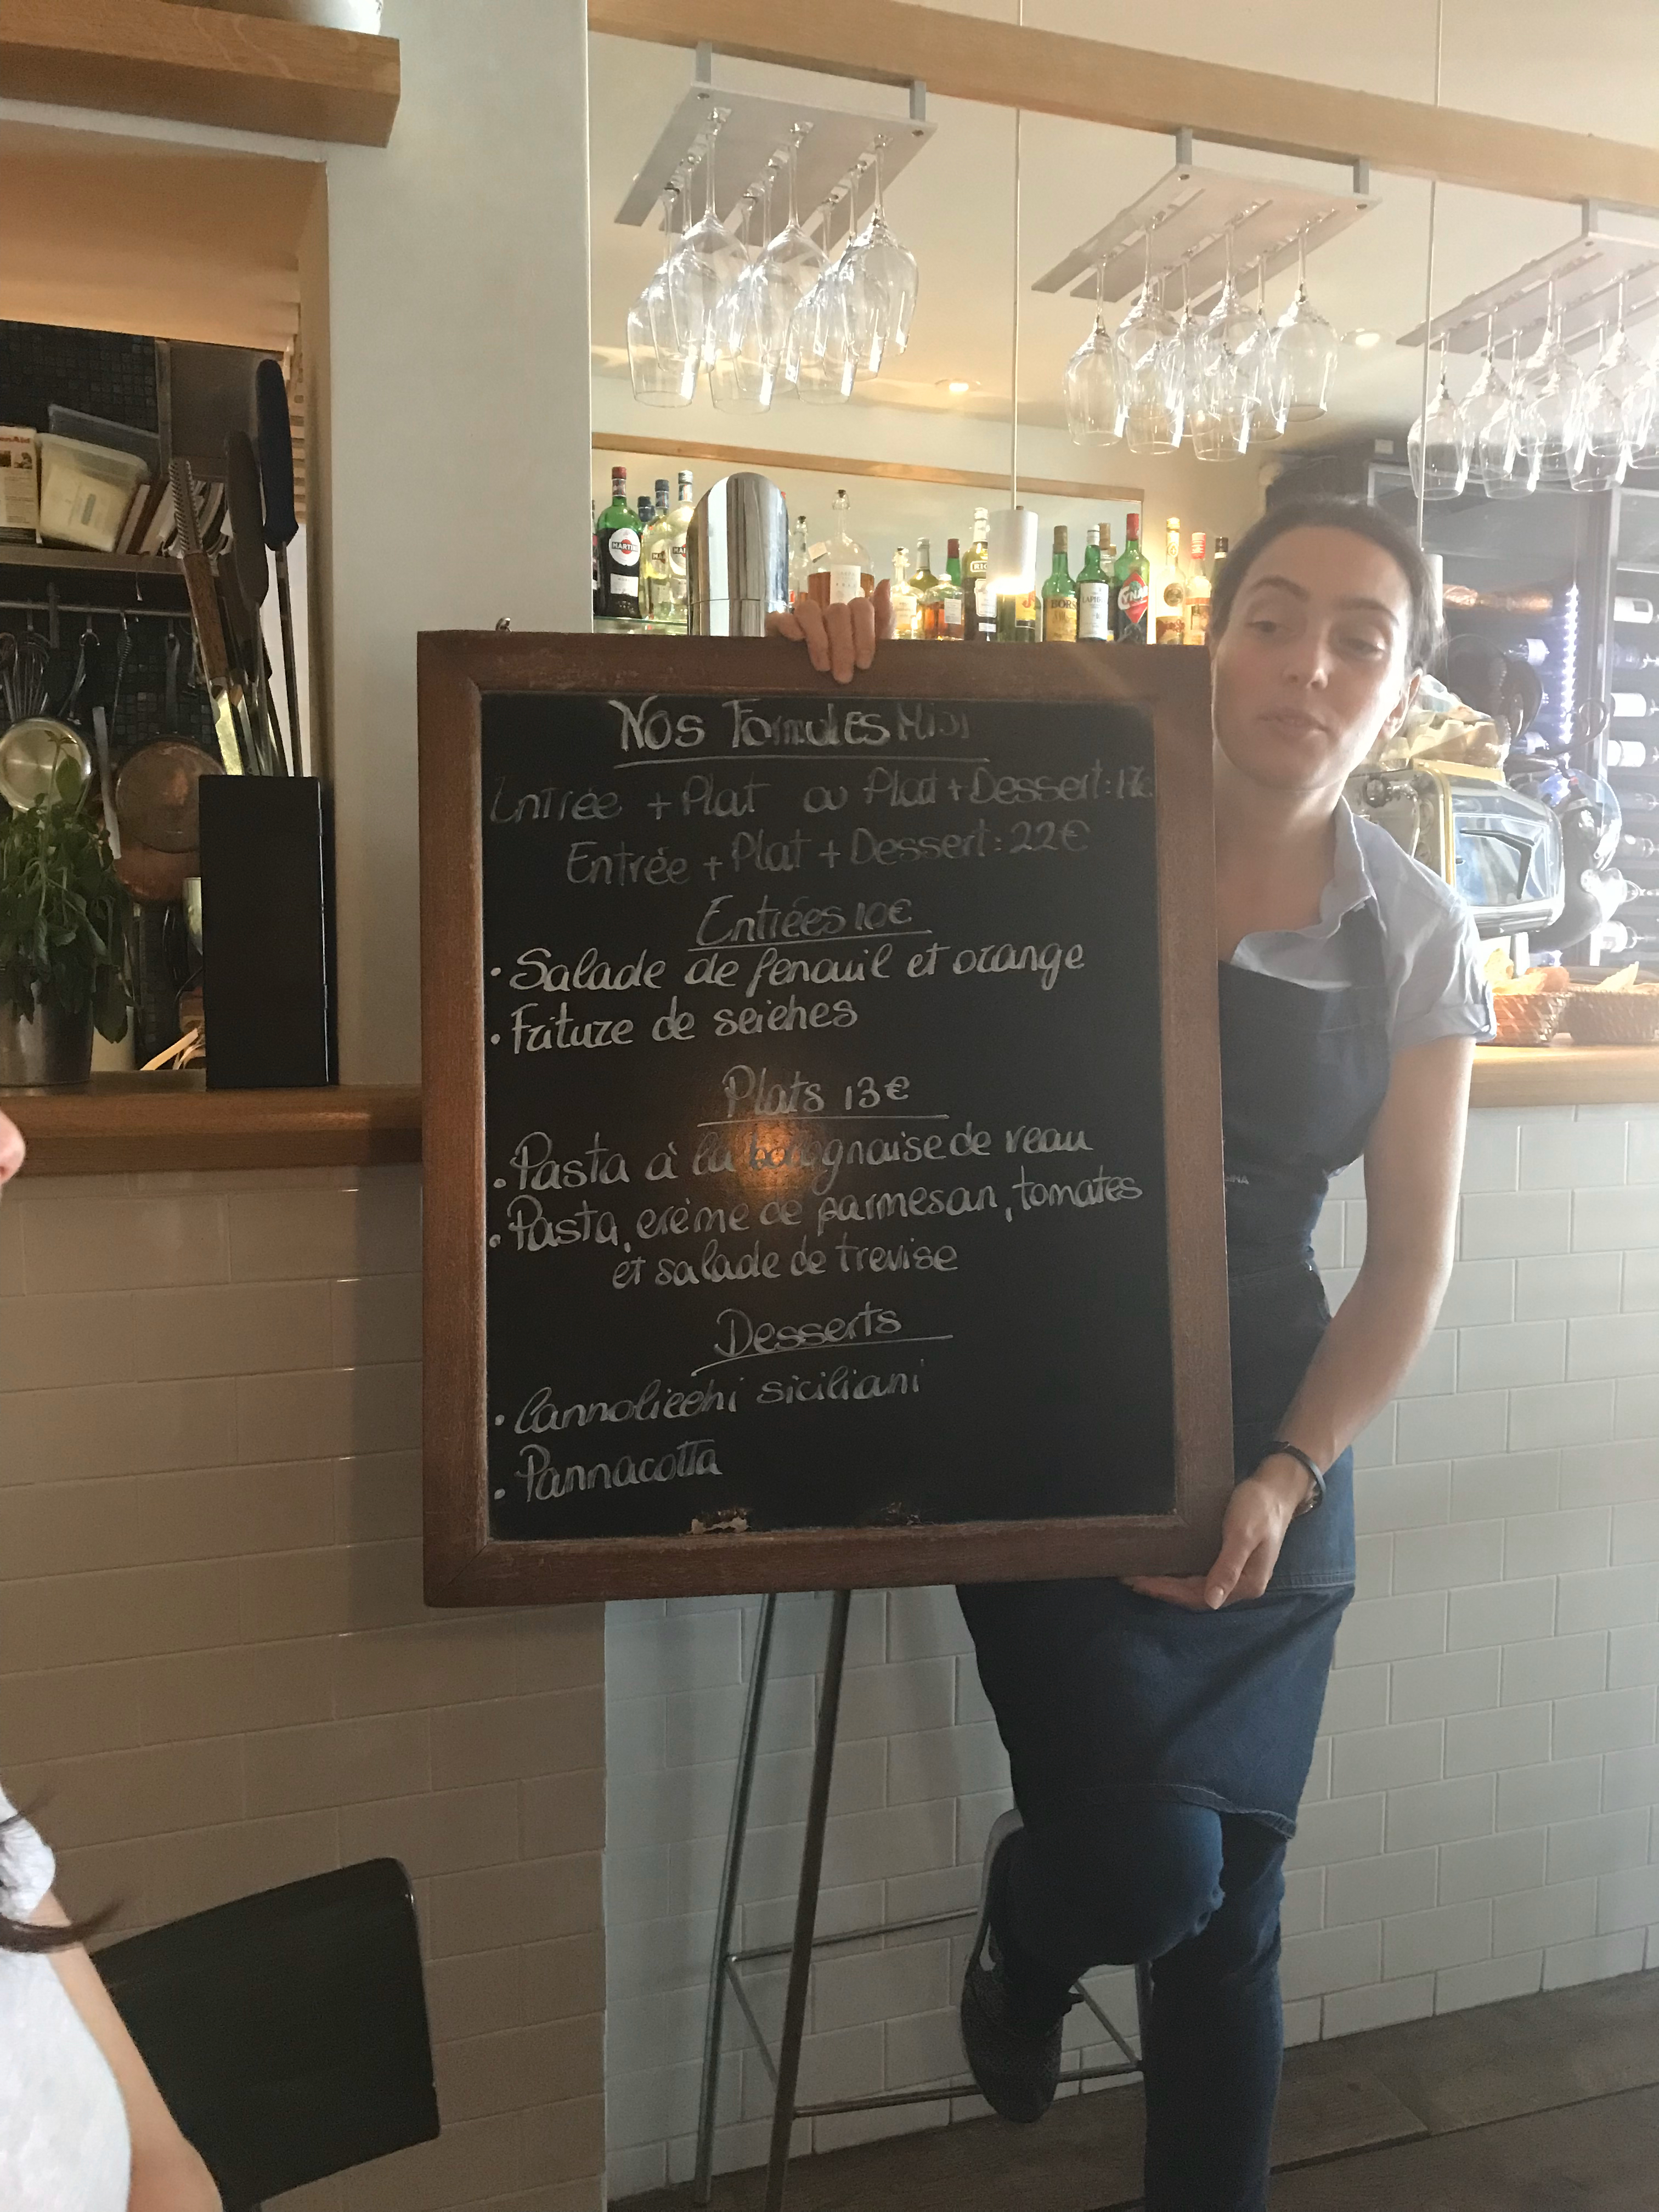 Nos Formules Midi
Entrée + Plat ou Plat + Dessert:
Entrée + Plat + Dessert: 22€
Entrées 10€
• Salade de fenouil et orange
• Friture de seiches
Plats 13€
• Pasta à la bolognaise de veau
• Pasta, crème de parmesan, tomates
et salade de trevise
Desserts
• Cannolicchi siciliani
• Pannacotta
MARTINI